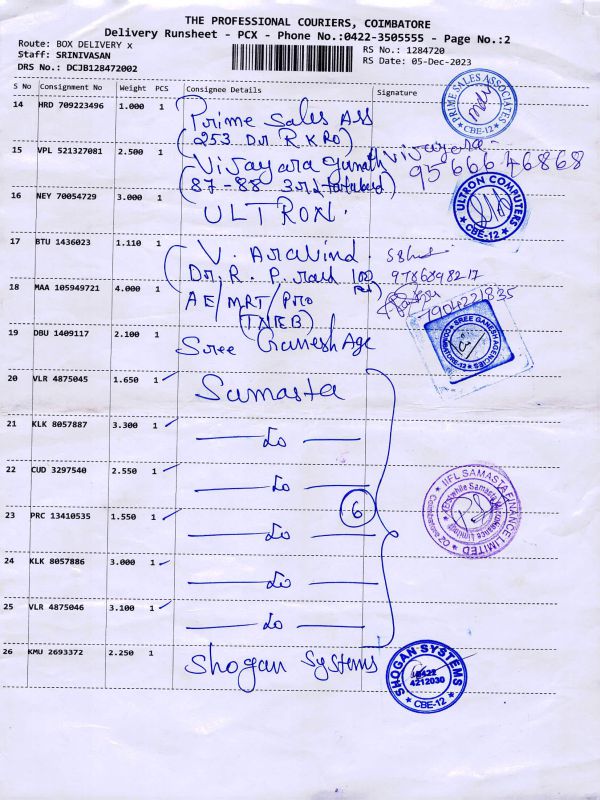 THE PROFESSIONAL COURIERS, COIMBATORE
Delivery Runsheet - PCX - Phone No.:0422-3505555 - Page No.:2
Route: BOX DELIVERY x
RS No.: 1284720
Staff: SRINIVASAN
RS Date: 05-Dec-2023
DRS No.: DCJB128472002
S No Consignment No Weight PCS Consignee Details Signature
14 HRD 709223496 1.000 1 Prime Sales Ass
(253 Dr R K Rd)
PRIME SALES ASSOCIATES
CBE-12
15 VPL 521327081 2.500 1 Vijayaragunath
(87-88 3rd
95666 46868
16 NEY 70054729 3.000 1 ULTRON.
ULTRON COMPUTERS
CBE-12
17 BTU 1436023 1.110 1 V. Aravind
Dr. R. P. 100
9786898217
18 MAA 105949721 4.000 1 AE/MRT/PRO
(TNEB)
7904221835
19 DBU 1409117 2.100 1 Sree Ganesh Age
SREE GANESH AGENCIES
COIMBATORE-12
20 VLR 4875045 1.650 1 Samasta
21 KLK 8057887 3.300 1 — do —
22 CUD 3297540 2.550 1 — do —
6
IIFL SAMASTA FINANCE LIMITED
23 PRC 13410535 1.550 1 — do —
24 KLK 8057886 3.000 1 — do —
25 VLR 4875046 3.100 1 — do —
26 KMU 2693372 2.250 1 Shogan Systems
SHOGAN SYSTEMS
0422
4212030
CBE-12